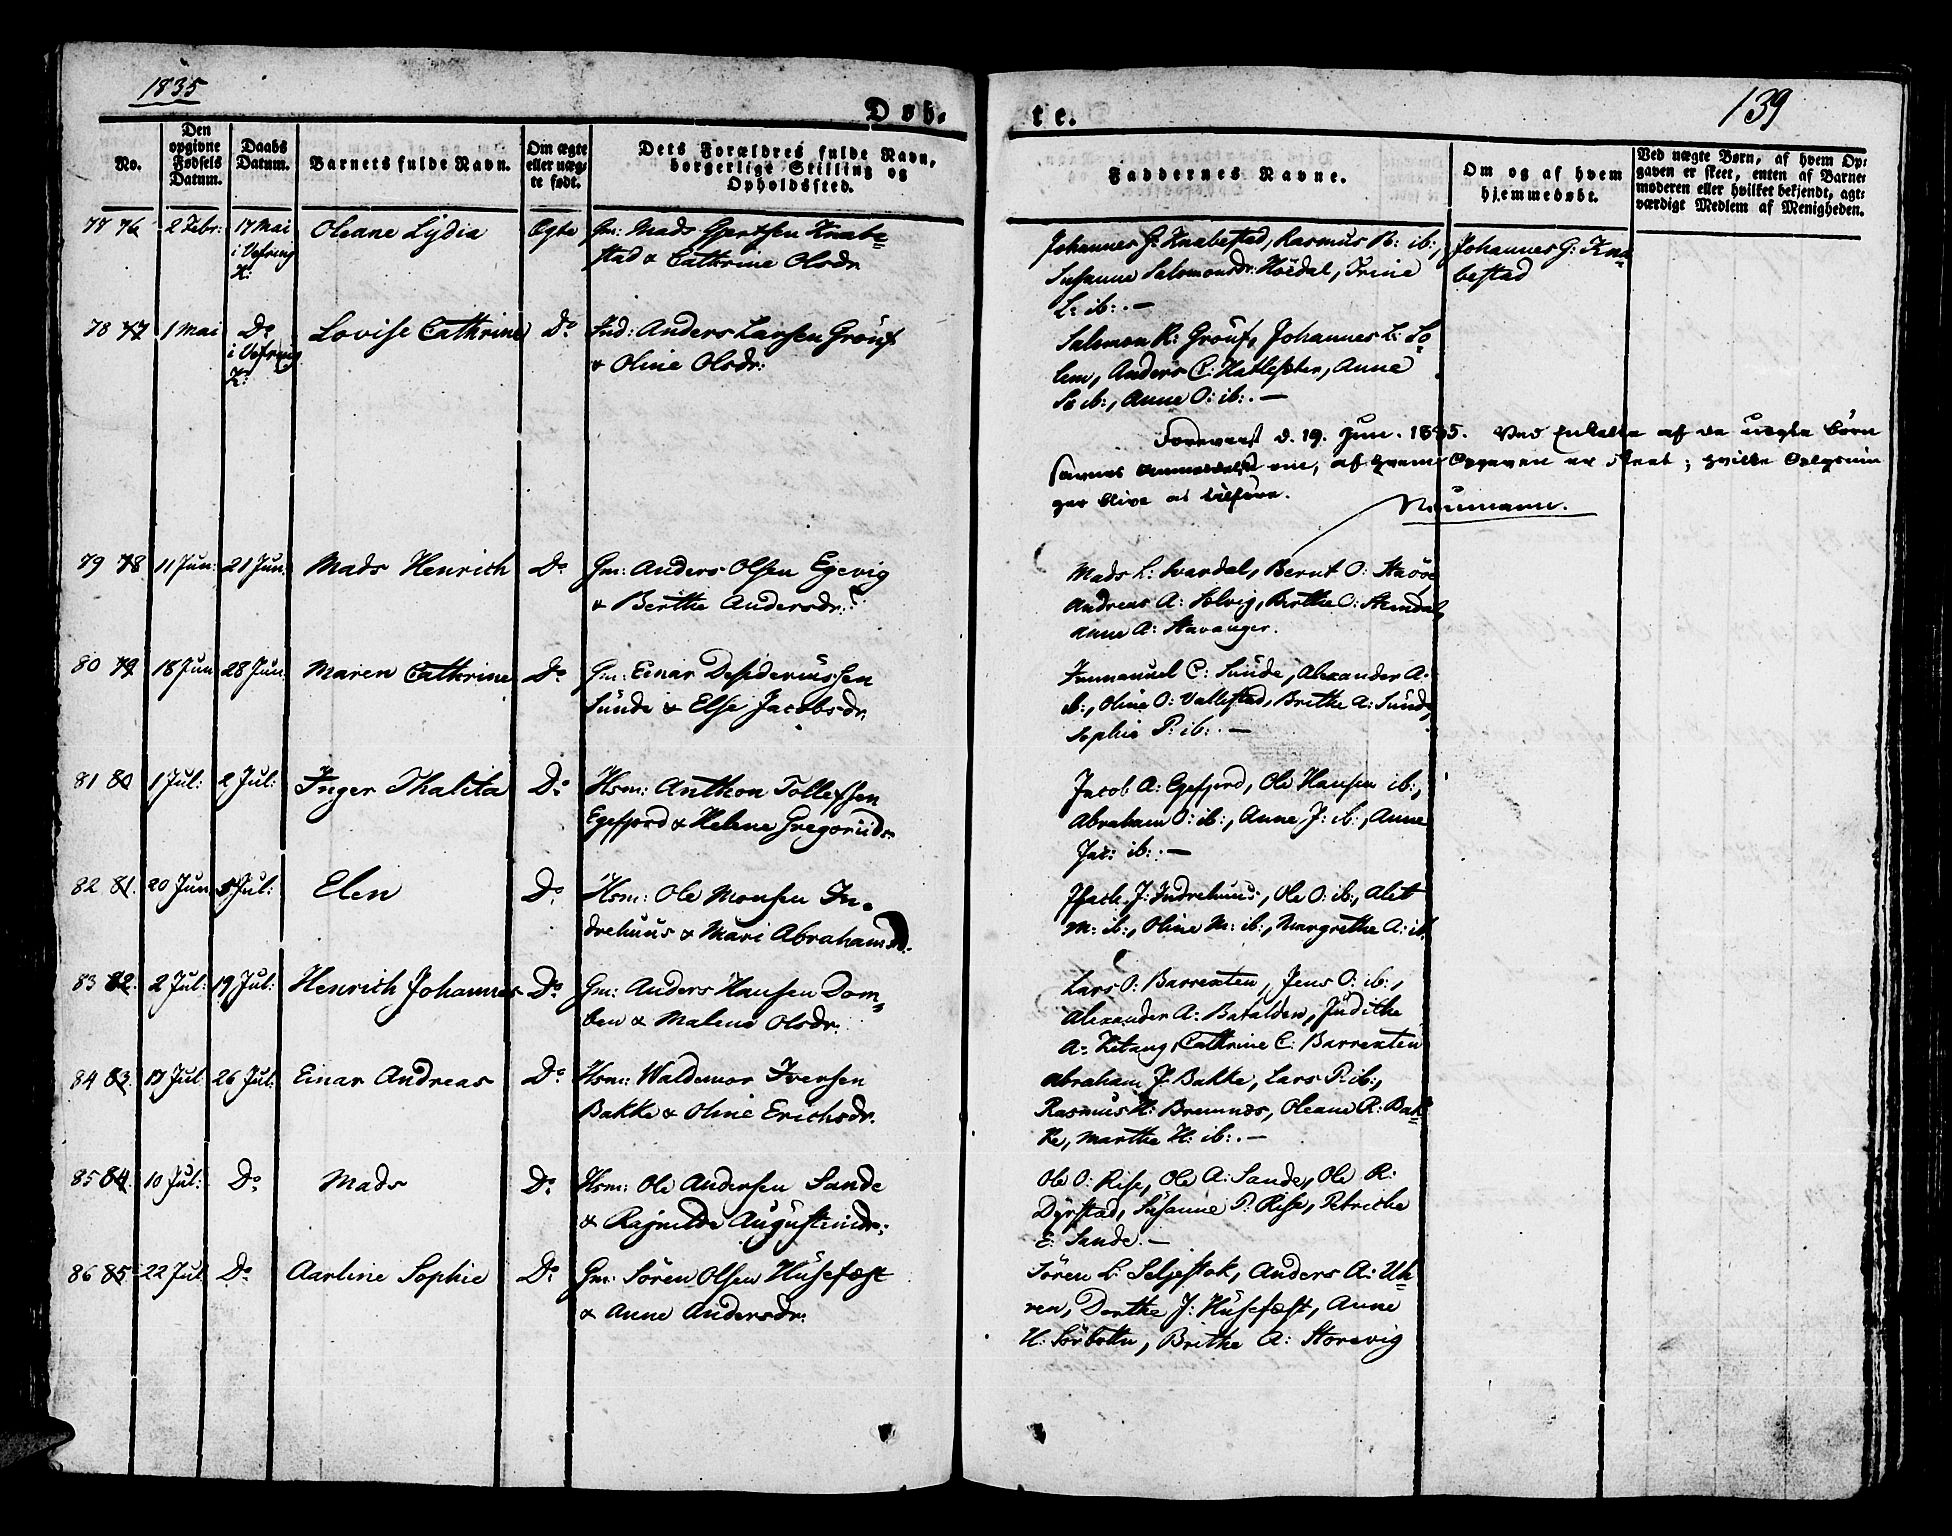 1835
139
Døb-
te.
No.
Den opgivne Fødsels Datum.
Daabs Datum.
Barnets fulde Navn.
Om ægte eller uægte født.
Dets Forældres fulde Navn, borgerlige Stilling og Opholdssted.
Faddernes Navne.
Om og af hvem hjemmedøbt.
Ved uægte Børn, af hvem Opgaven er skeet, enten af Barnemoderen eller hvilket bekjendt, agtværdigt Medlem af Menigheden.
77 76 2 Febr: 17 Mai Oleane Lydia Ægte Gm: Mads Gjertsen Knabe-
i Vefring K: stad & Cathrine Olsdr
Johannes G: Knabestad, Rasmus B: ib:, Johannes G: Kna-
Susanne Salomonsdr: Høidal, Trine bestad
L: ib:. —
78 77 1 Mai Do Lovise Cathrine Do Ind: Anders Larsen Grouf
i Vefring K: & Oline Olsdr:
Salomon R: Grouf, Johannes L: So-
lem, Anders C: Hatlesæter, Anne
S: ib:, Anne O: ib:. —
Foreviist d. 19. Jun. 1835. Ved Enkelte af de uægte Børn
savnes Anmærkning om, af hvem Opgaven er skeet; hvilke Oplysnin
ger blive at tilføre.
Neumann.
79 78 11 Jun: 21 Jun: Mads Henrich Do Gm: Anders Olsen Egevig
& Berithe Andersdr:
Mads L: Svardal, Bernt O: Starøe
Andreas A: Solvig, Birthe O: Stendal,
Anne A: Stavanger.
80 79 18 Jun 28 Jun: Maren Cathrine Do Gm: Einar Desideriussen
Sunde & Else Jacobsdr.
Immanuel C: Sunde, Alexander A:
ib:, Oline O: Vallestad, Brithe A: Sunde,
Sophie P: ib:. —
81 80 1 Jul: 2 Jul: Inger Thalita Do Hsm: Anthon Tollefsen
Egefjord & Helene Gregoriidr.
Jacob A: Egefjord, Ole Hansen ib:,
Abraham O: ib:, Anne J: ib:, Anne
Jac: ib:. —
82 81. 20 Jun 5 Jul: Elen Do Hsm: Ole Monsen In-
drehuus & Mari Abrahamsdr.
J: Indrehuus, Ole O: ib:, Alet
M: ib:, Oline M: ib:, Margrethe A: ib.
83 82. 2 Jul: 19 Jul: Henrich Johannes Do Gm: Anders Hansen Dom-
ben & Malene Olsdr:
Lars O: Barrexten, Jens O: ib:,
Alexander A: Batalden, Judithe
A: Kitang, Cathrine C: Barrexten
84 83. 17 Jul 26 Jul: Einar Andreas Do Hsm: Waldemor Iversen
Bakke & Oline Erichsdr.
Abraham J: Bakke, Lars P: ib:,
Rasmus H: Bremnes, Oleane R: Bak-
ke, Marthe H: ib:. —
85 84. 10 Jul: Do Mads Do Hsm: Ole Andersen Sande
& Ragnilde Augustinidr:
Ole O: Rise, Ole A: Sande, Ole R:
Dyrstad, Susanne P: Rise, Petrithe
E: Sande. —
86 85 22 Jul Do Aarline Sophie Do Gm: Søren Olsen Husefæst
& Anne Andersdr:
Søren L: Seljestok, Anders A: Uh-
ren, Dorthe J: Husefæst, Anne
H: Sørbotten, Brithe A: Storevig